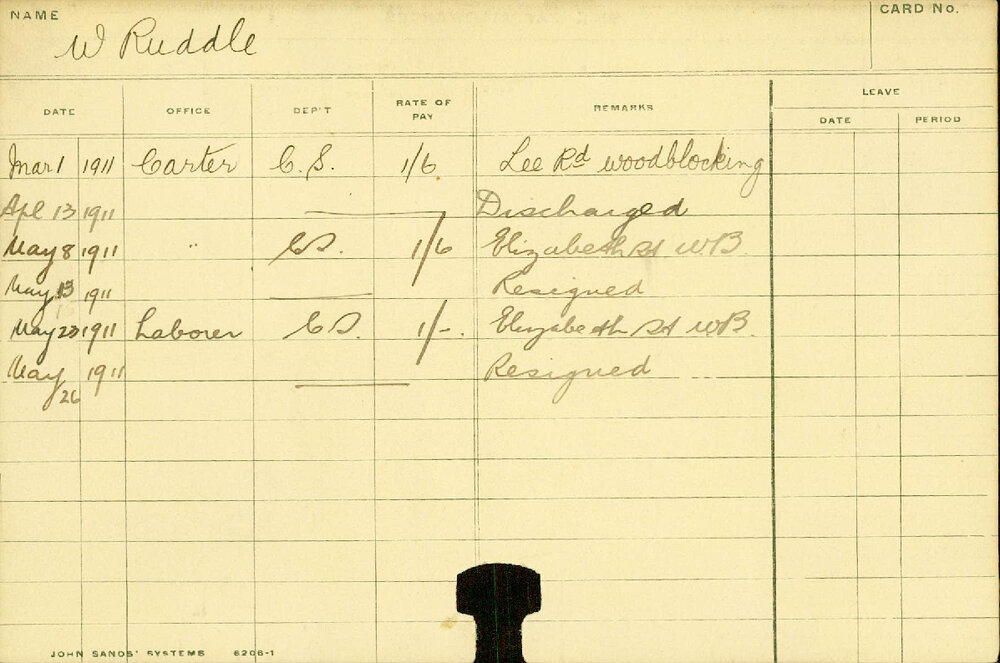 NAME W Ruddle CARD No.
LEAVE
DATE OFFICE DEP'T RATE OF PAY REMARKS DATE PERIOD
Mar 1 1911 Carter C.S. 1/6 Lee Rd woodblocking
Apl 13 1911 Discharged
May 8 1911 " C.S. 1/6 Elizabeth St W.B
May 13 1911 Resigned
May 23 1911 Laborer C.S. 1/-. Elizabeth St WB.
May 26 1911 Resigned
JOHN SANDS' SYSTEMS 6206-1